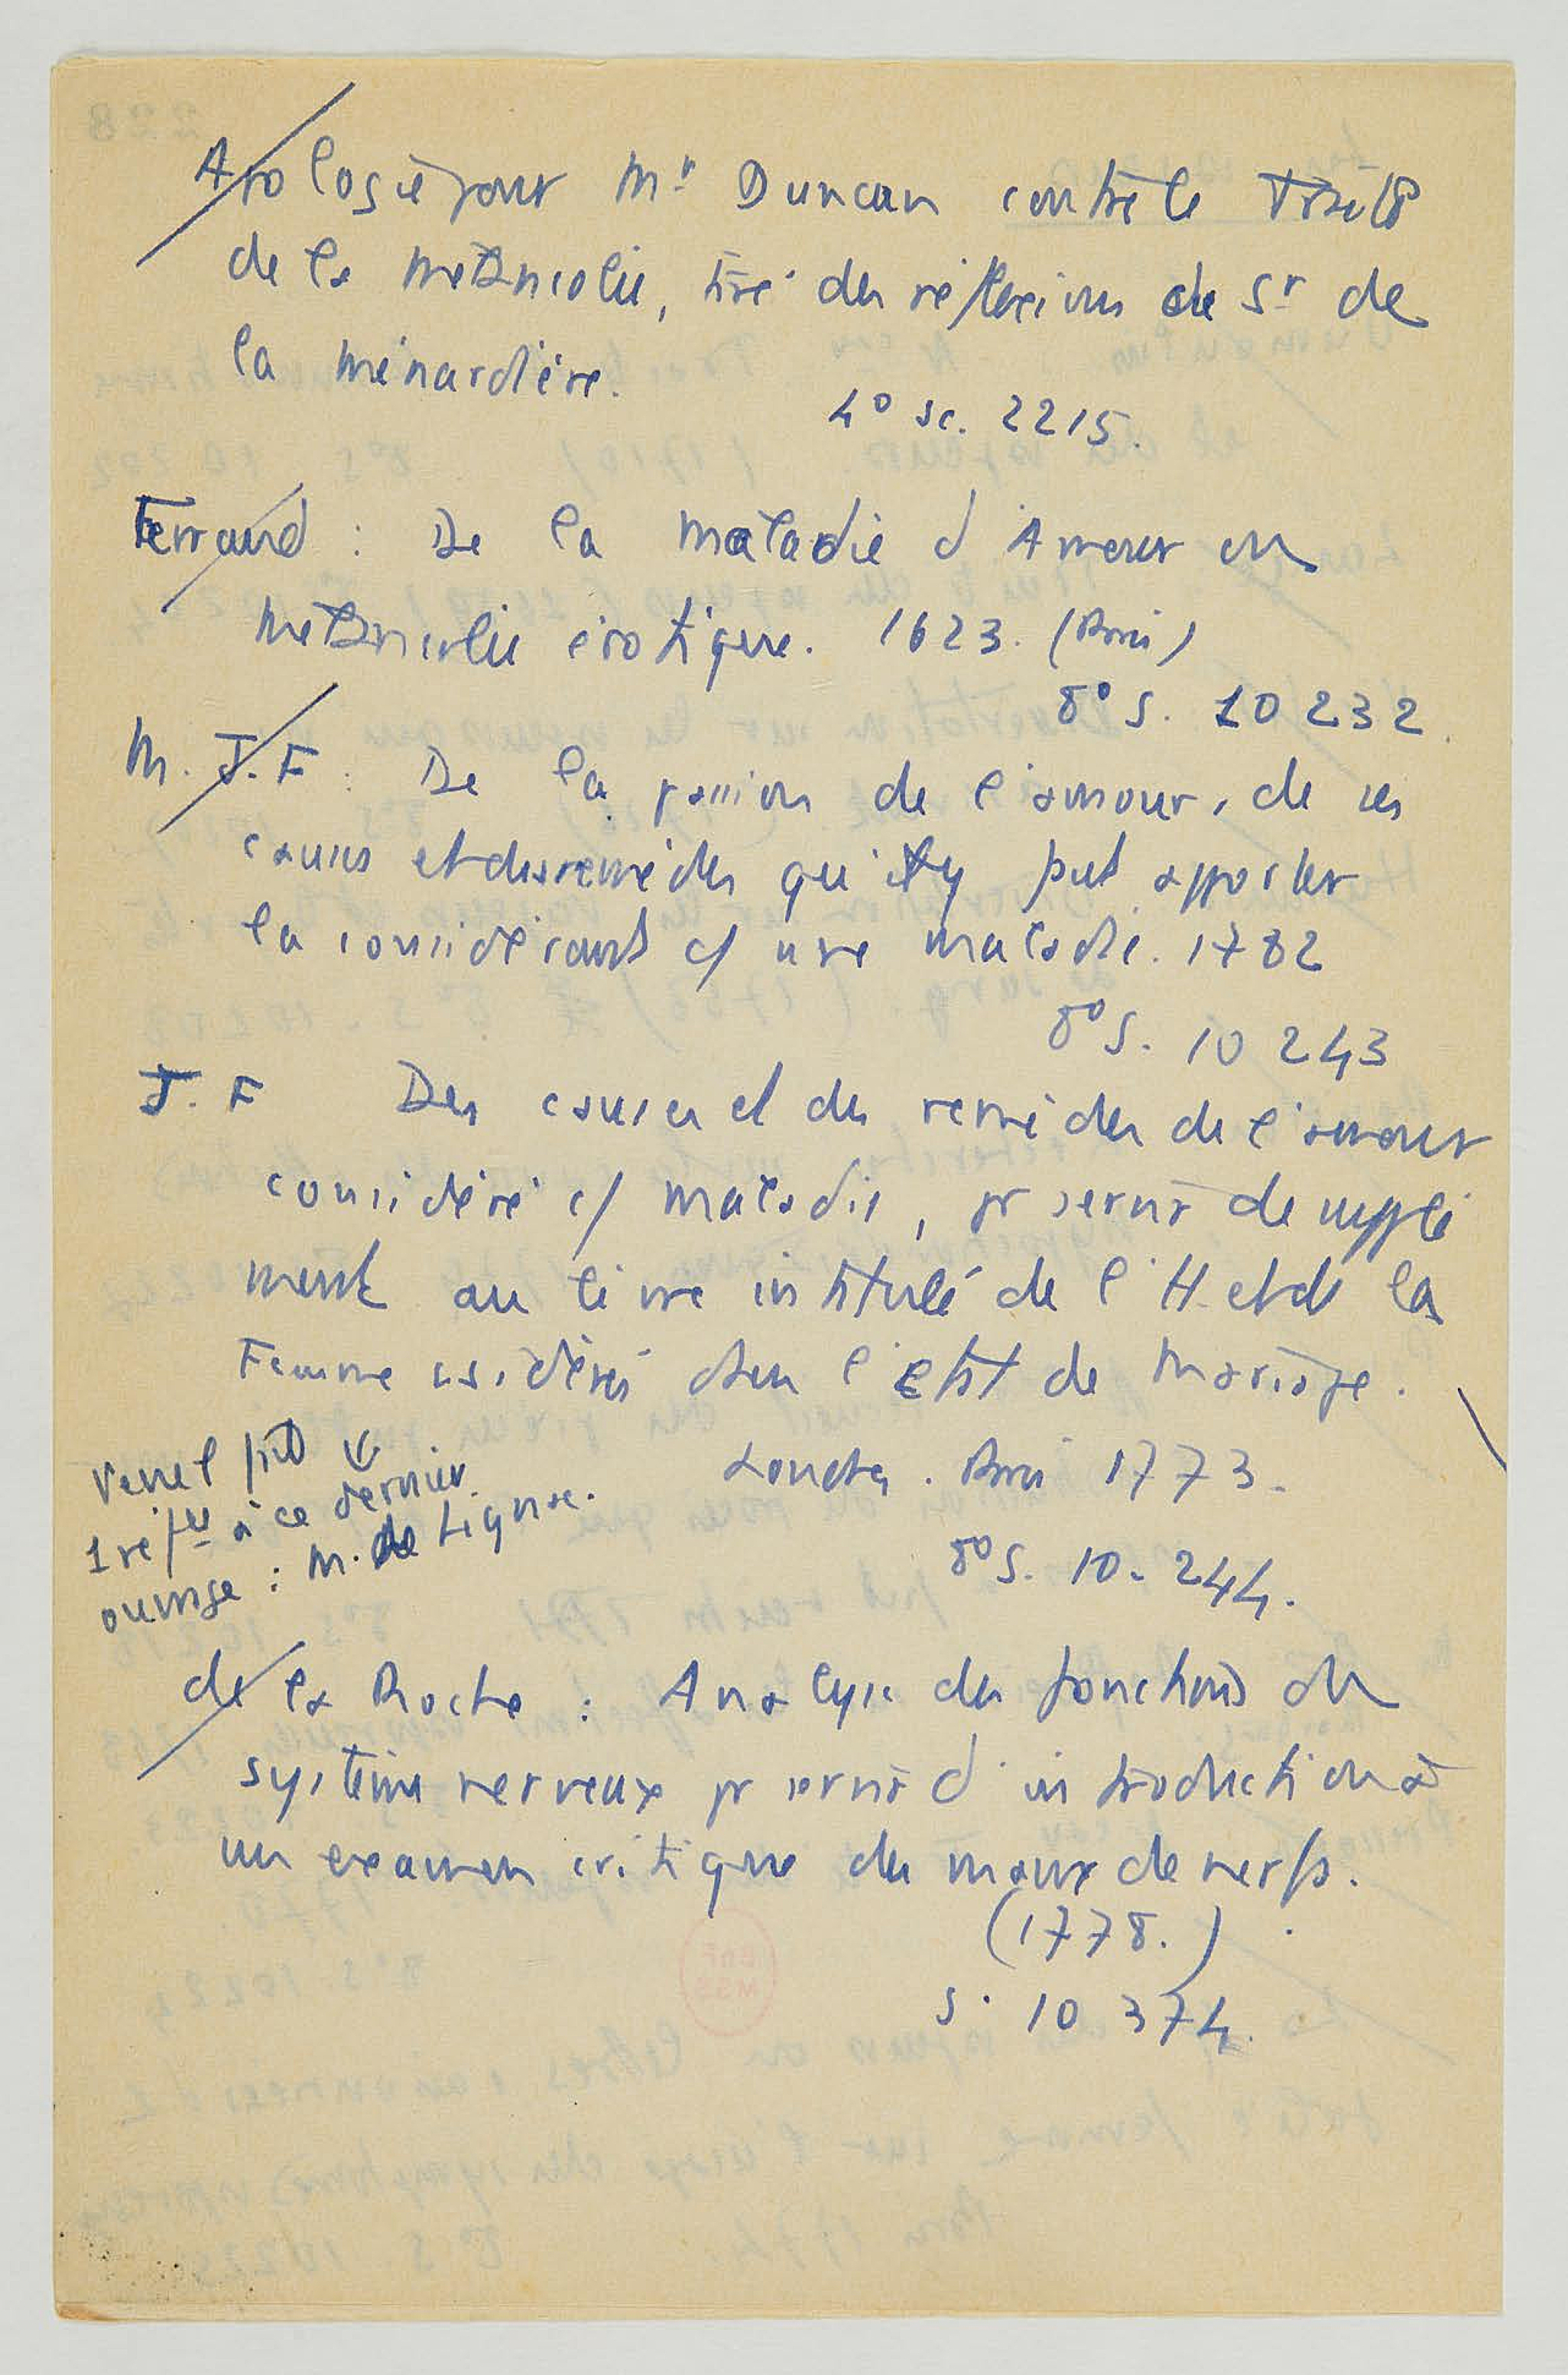 Apologie pour Mr Duncan contre le Traité
de la Mélancolie, tiré des réflexions de Sr de
la Ménardière.
4° Sc. 2215.
Ferrand : De la maladie d'Amour ou
Mélancolie érotique. 1623. (Paris)
8° S. 10 232.
M. J. F : De la passion de l'amour, de ses
causes et des remèdes qu'il y faut apporter
la considérant c/ une maladie. 1782
8° S. 10 243
J. F Des causes et des remèdes de l'amour
considéré c/ maladie, pr servir de supplé
ment au livre intitulé de l'H. et de la
Femme csidérés dans l'Etat de Mariage.
Londres. Paris 1773.
8° S. 10. 244.
Venel fait
1 réfce à ce dernier
ouvrage : M. de Lignac.
de la Roche : Analyse des fonctions du
système nerveux pr servir d'introduction à
un examen critique des maux de nerfs.
(1778.)
S. 10 374.